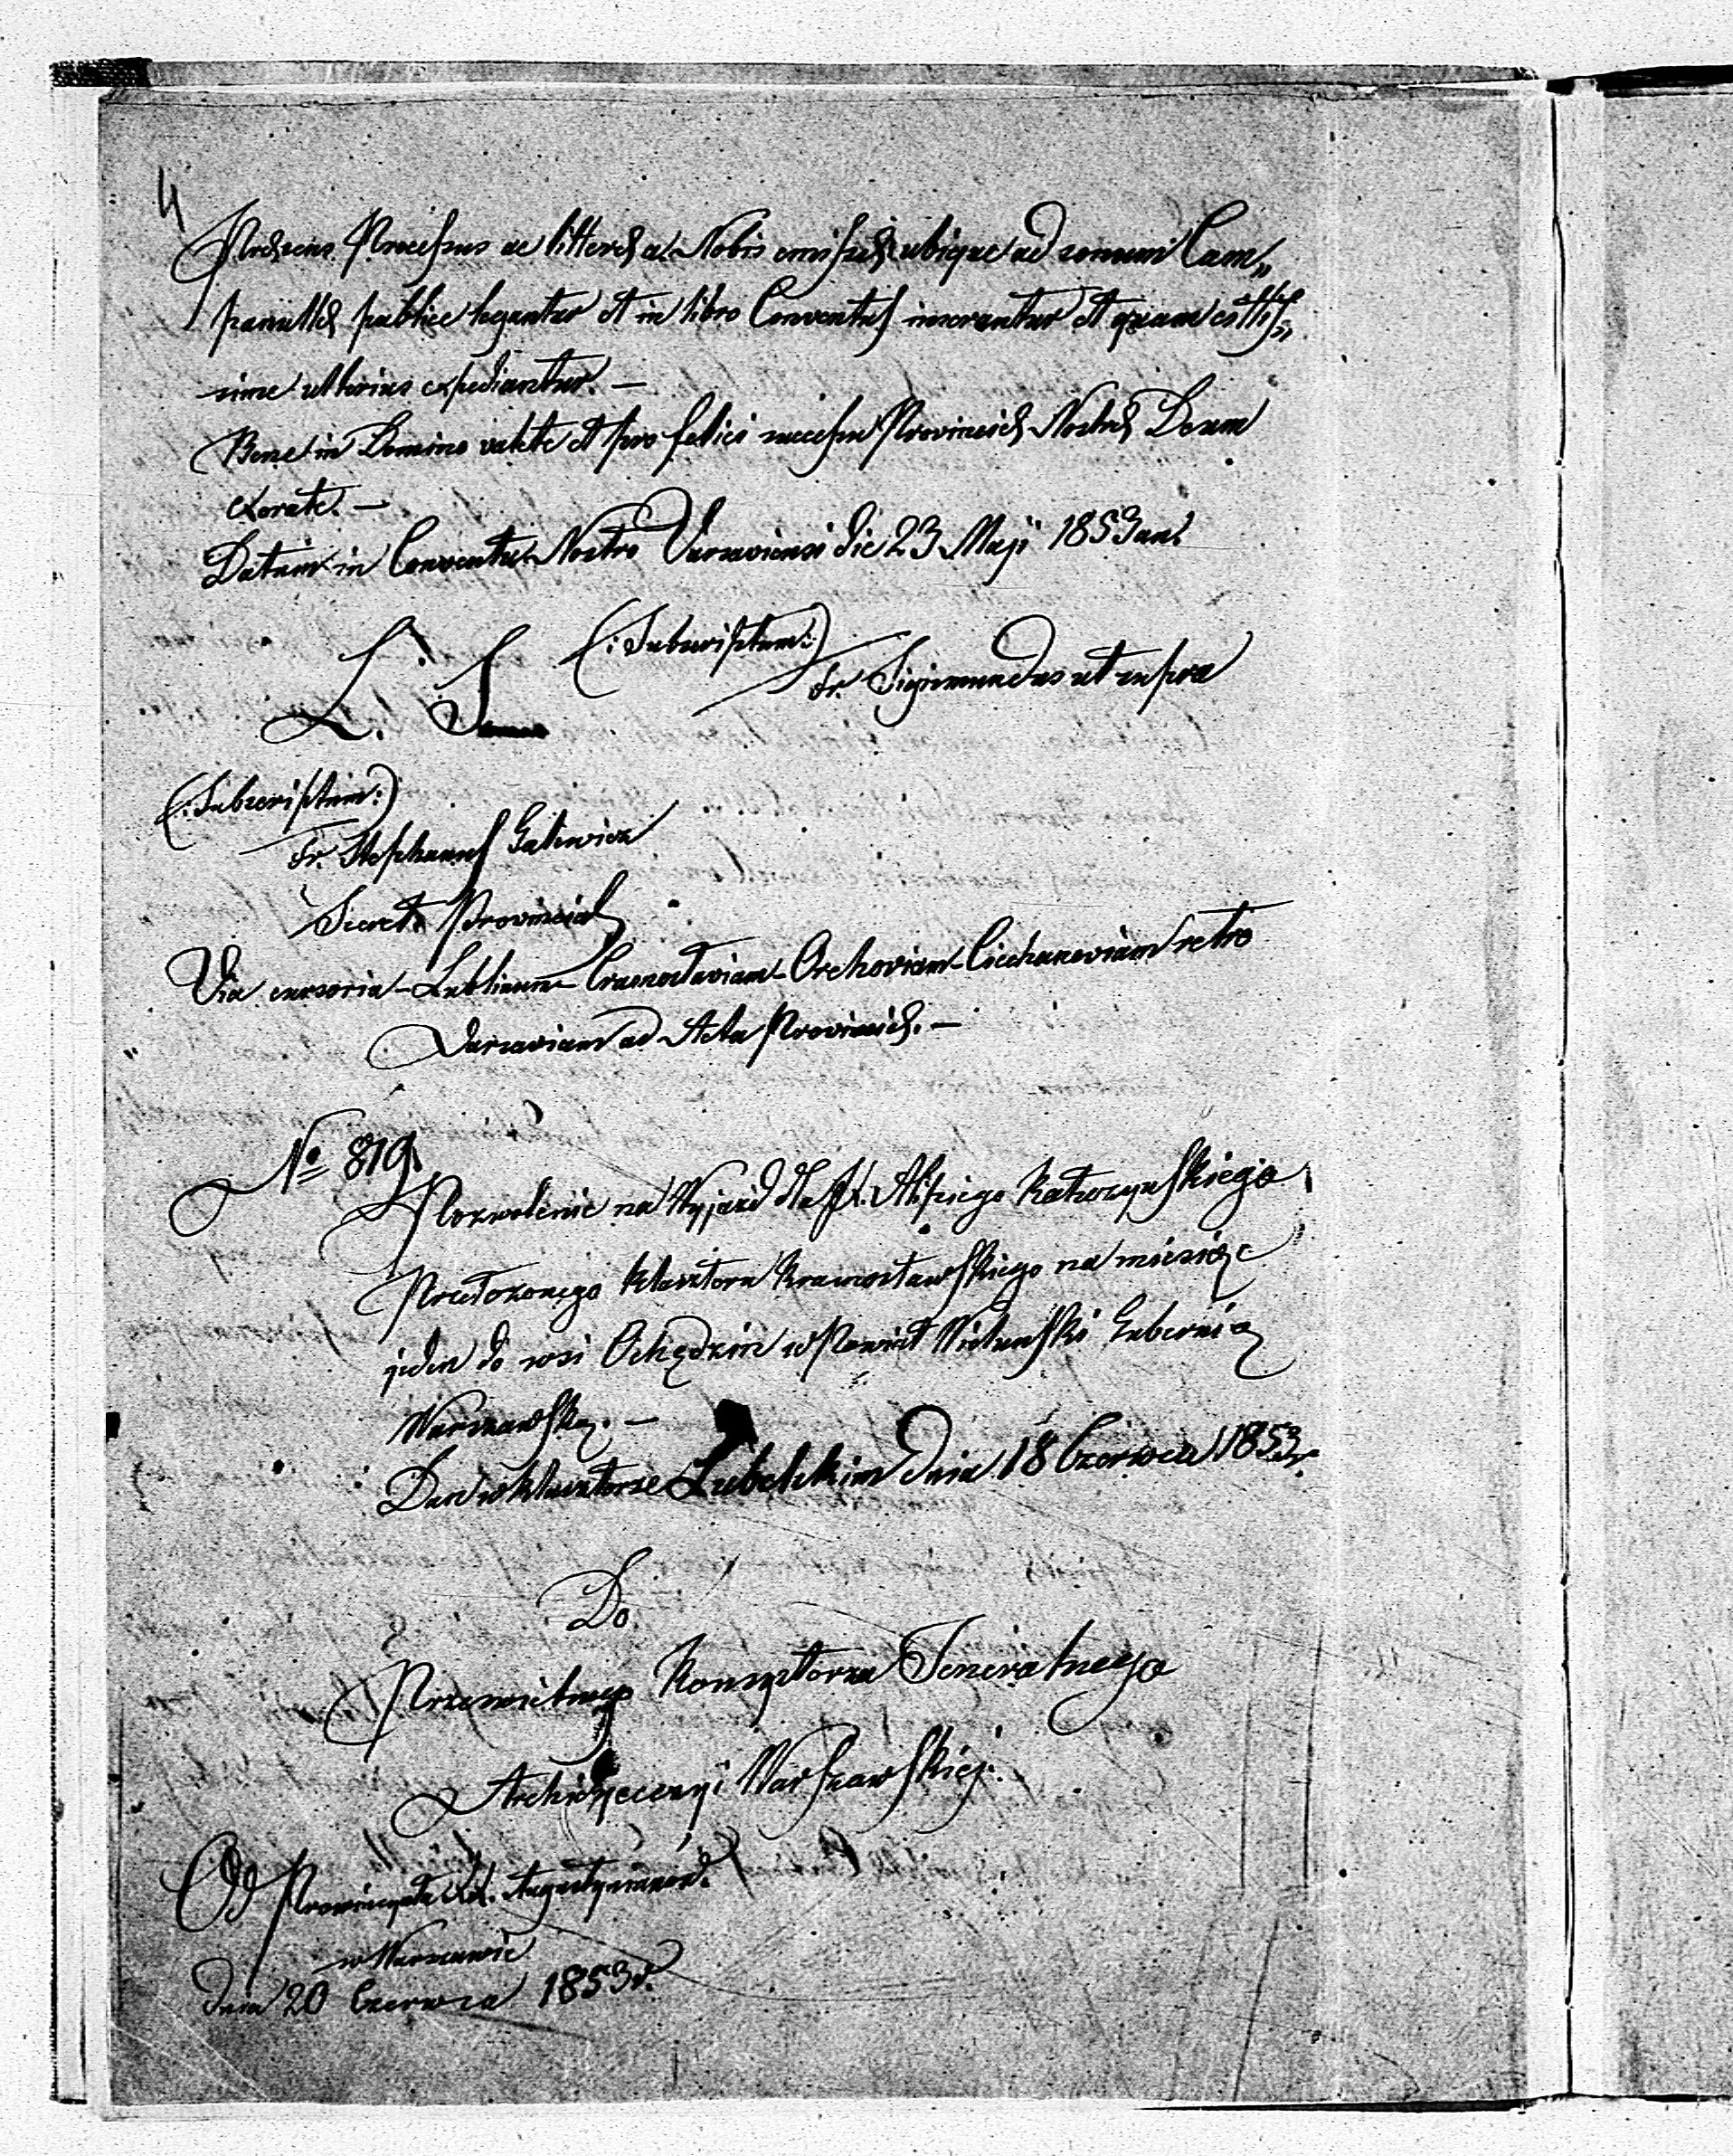 4
Præsens Processus ac litteræ a Nobis emissæ ubique ad sonum Cam„
panullæ publice legantur et in libro Conventus inserantur et quam citis„
sime ulterius expediantur. —
Bene in Domino valete et pro felici successu Provinciæ Nostræ Deum
exorate. —
Datum in Conventu Nostro Varsaviensi die 23 Maji 1853 an.
L. S. (:Subscriptum:)
Fr. Sigismundus ut supra
(:Subscriptum:)
Fr. Stephanus Galewicz
Secret. Provinciæ
Via cursoria - Lublinum - Crasnostaviam - Orchoviam - Ciechanoviam retro
Varsaviam ad Acta Provinciæ. —
No 819.
Pozwolenie na Wyjazd dla X. Kałuzyńskiego
Przełożonego Klasztoru Krasnostawskiego na miesiąc
jeden do wsi Ochędzin w Powiat Wieluński Gubernią
Warszawską. —
Dan w Klasztorze Lubelskim dnia 18 Czerwca 1853 r.
Do
Prześwietnego Konsystorza Jeneralnego
Archidyecezyi Warszawskiej.
Od Prowincyała XX. Augustyanów.
w Warszawie
dnia 20 Czerwca 1853 r.